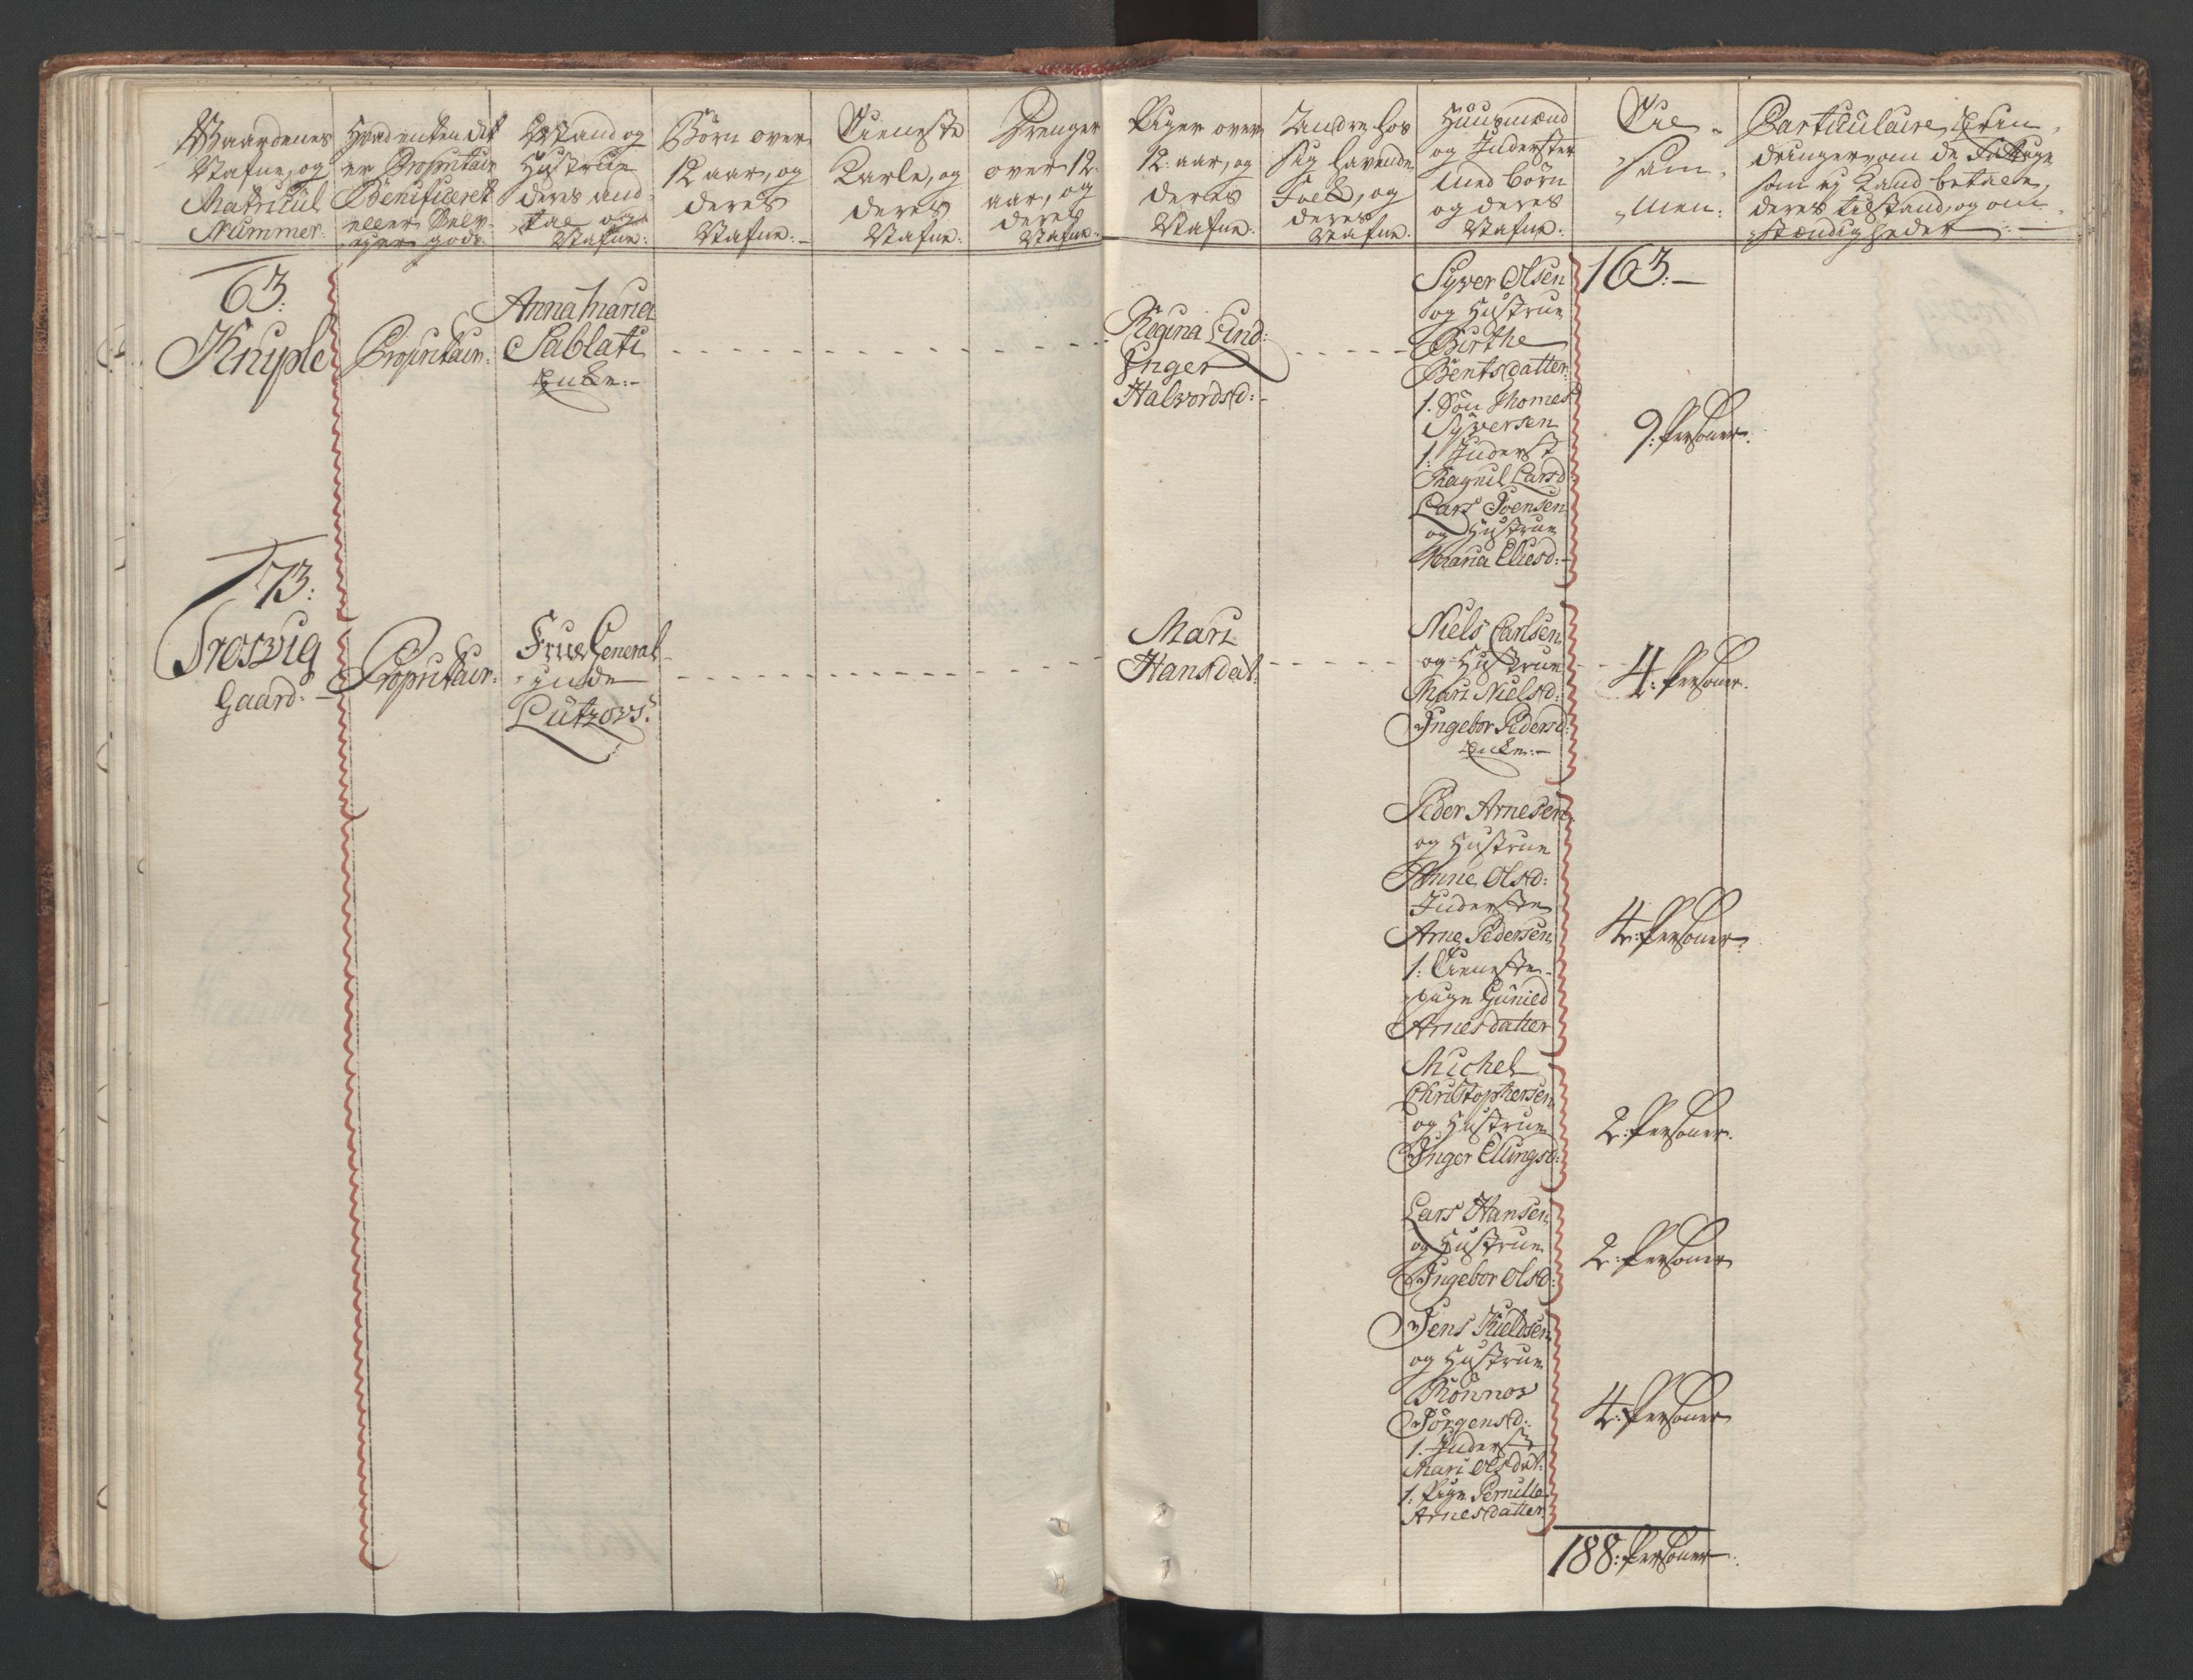 Gaardenes
Nafne, og
Matricul
Nummer.
Hvad enten det
er Propritair
Benificeret
eller Selv-
eijer gods
Børn over
12 aar, og
deres
Nafne:
Tieneste
Karle, og
deres
Nafne:
Drenger
over 12
aar, og
deres
Nafne:
Piger over
12: aar, og
deres
Nafne:
Andre hos
sig havende
Folk, og
deres
Nafne:
Huusmænd
og Inderster
med børn
og deres
Nafne:
Til-
sam-
men:
Particulaire Erin-
dringer, om de Fattige
som ej kand betale,
deres tilstand, og om-
stændigheder
63:
Kniple
Propritair:
Anna Maria
Sablati
Enke:
Regina Lind:
Inger
Halvordsd:
Syver Olsen
og Hustrue
Birthe
Bentsdatter:
1. Søn Thomes
Syversen
1: Inderst
Ragnil Larsd:
Lars Joensen
og Hustrue
Maria Eliesd:
163:
9: Personer.
73:
Trosvig
Gaard:
Propritair:
Frue General-
inde
Lützows:
Mari
Hansdat:
Niels Carlsen
og Hustrue
Mari Nielsd:
Ingebor Pedersd:
Enke:
4: Personer.
Peder Arnesen
og Hustrue
Anne Olsd:
Inderste
Arne Pedersen
1: Tieneste-
pige Gunild
Arnesdatter
4: Personer.
Michel
Christophersen
og Hustrue
Inger Ellingsd:
2: Personer.
Lars Hansen
og Hustrue
Ingebor Olsd:
2: Personer
Jens Kieldsen
og Hustrue
Rønnov
Jörgensd:
1. Inderste
Mari Olsdat:
1: Pige Pernille
Arnesdatter
4: Personer
188: Personer